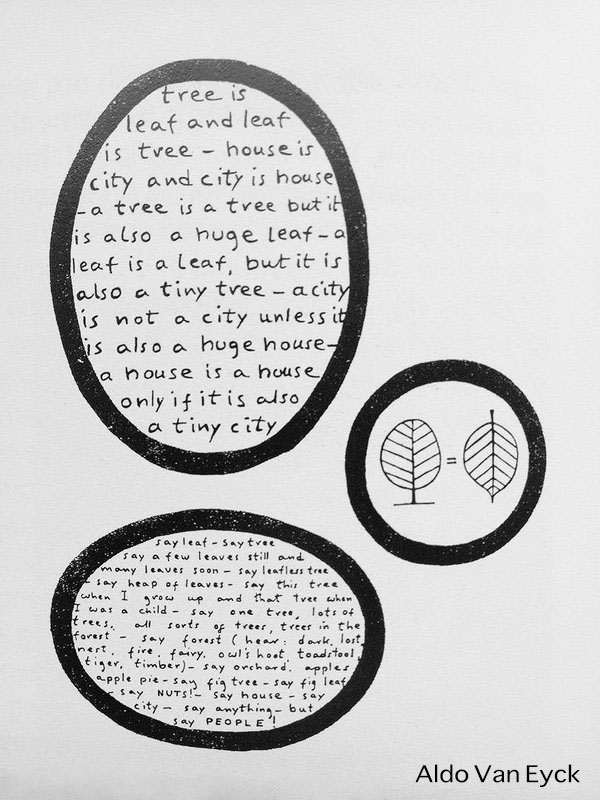 tree is
leaf and leaf
is tree – house is
city and city is house
– a tree is a tree but it
is also a huge leaf – a
leaf is a leaf, but it is
also a tiny tree – a city
is not a city unless it
is also a huge house –
a house is a house
only if it is also
a tiny city
=
say leaf – say tree
say a few leaves still and
many leaves soon – say leafless tree
– say heap of leaves – say this tree
when I grow up and that tree when
I was a child – say one tree, lots of
trees, all sorts of trees, trees in the
forest – say forest (hear: dark, lost,
nest, fire, fairy, owl's hoot, toadstool,
tiger, timber) – say orchard, apples
apple pie – say fig tree – say fig leaf
– say NUTS! – say house – say
city – say anything – but
say PEOPLE!
Aldo Van Eyck